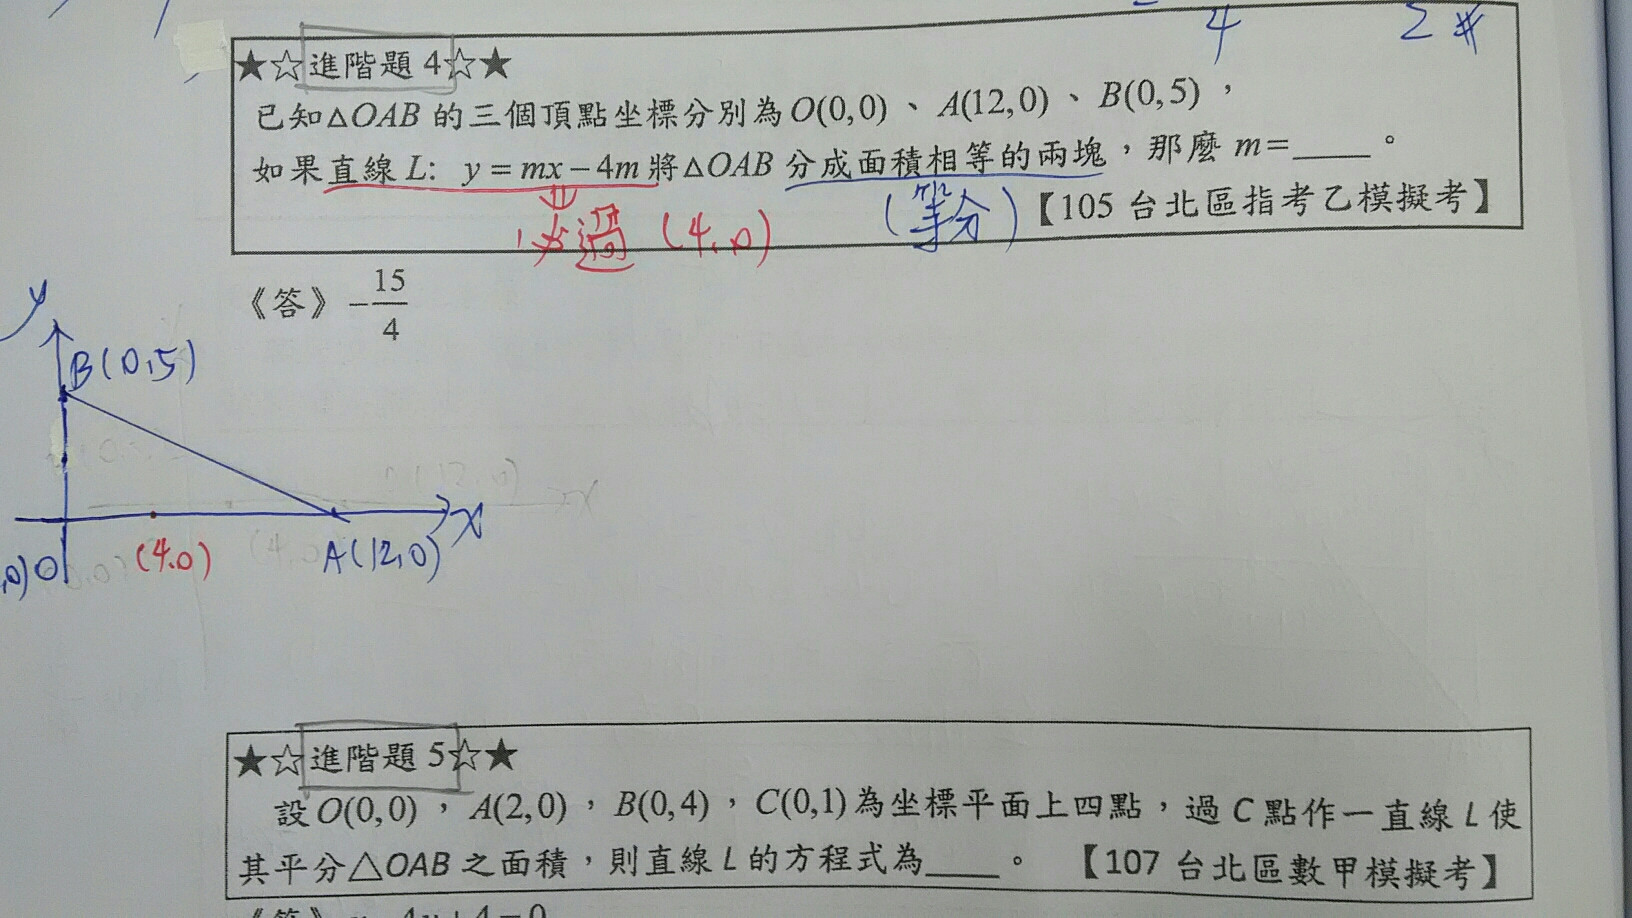 4 2 #
★☆進階題 4☆★
已知△OAB 的三個頂點坐標分別為 O(0,0)、A(12,0)、B(0,5),
如果直線 L: y = mx − 4m 將△OAB 分成面積相等的兩塊,那麼 m=____。
必過 (4,0) (等分) 【105 台北區指考乙模擬考】
《答》−15/4
y
B(0,5)
x
,0) O (4,0) A(12,0)
★☆進階題 5☆★
設 O(0,0),A(2,0),B(0,4),C(0,1) 為坐標平面上四點,過 C 點作一直線 L 使
其平分△OAB 之面積,則直線 L 的方程式為____。 【107 台北區數甲模擬考】